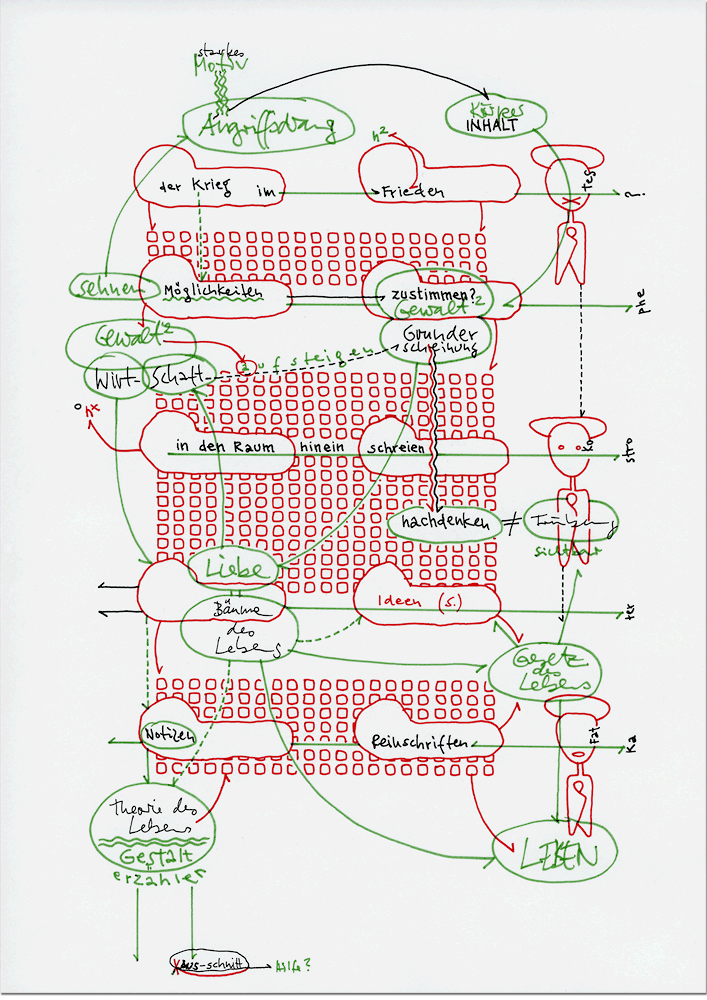 starkes
Motiv
Angriffsdrang
Körper
INHALT
h²
der Krieg im
Frieden
?!
sehnen
Möglichkeiten
zustimmen?
Gewalt²
phe
Gewalt²
Grunder
scheinung
aufsteigen
Wirt-
Schaft
hˣ
in den Raum hinein schreien
stro
nachdenken ≠
sichtbar
Liebe
Bäume
des
Lebens
Ideen (s.)
Gesetz
des
Lebens
Notizen
Reinschriften
Fat
Ka
theorie des
Lebens
Gestalt
erzähler
LEBEN
Aus-schnitt